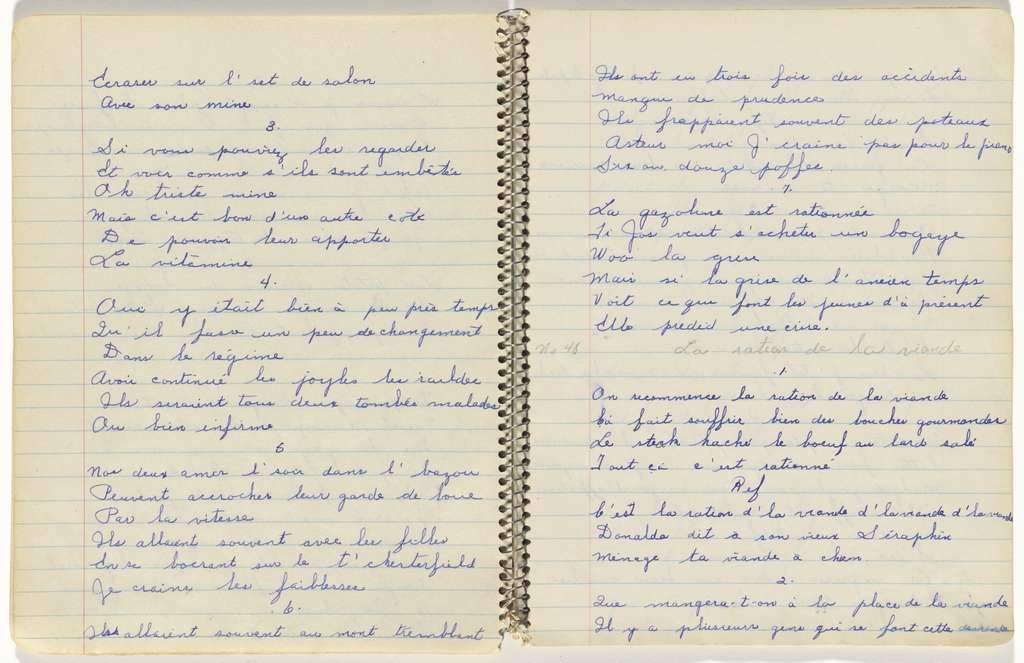 Ecraser sur l'set de salon
Avec son mine
3.
Si vous pouvirez les regarder
Et voir comme s'ils sont embêtés
Oh triste mine
Mais c'est bon d'un autre coté
De pouvoir leur apporter
La vitamine
4.
Oui y était bien à peu près temps
Qu'il fasse un peu de changement
Dans le régime
Avoir continué les
Ils seraient tous deux tombés malades
Ou bien infirme
5
Nos deux amer l'soir dans l'bazou
Peuvent accrocher leur garde de boue
Par la vitesse
Ils allaient souvent avec les filles
En se bocrant sur le t'chesterfield
Je crains les faiblesses
.6.
Ils allaient souvent au mont tremblant
Ils ont eu trois fois des accidents
Manque de prudence
Ils frappaient souvent des poteaux
Asteur moi J'crains pas pour le piano
Dix ou douze poffes.
.7.
La gazoline est rationnée
Ti Jos veut s'acheter un bogeye
Woo la grise
Mais si la grise de l'ancien temps
Voit ce que font les jeunes d'à présent
Elle predid une crise.
No 48 La ration de la viande
.1.
On recommence la ration de la viande
Cà fait souffrir bien des bouches gourmandes
Le steak haché le boeuf au lard salé
Tout cà c'est rationné
Ref
C'est la ration d'la viande d'la viande d'la viande
Donalda dit à son vieux Séraphin
Ménege ta viande à chem.
2.
Que mangera-t-on à la place de la viande
Il y a plusieurs gens qui se font cette demande